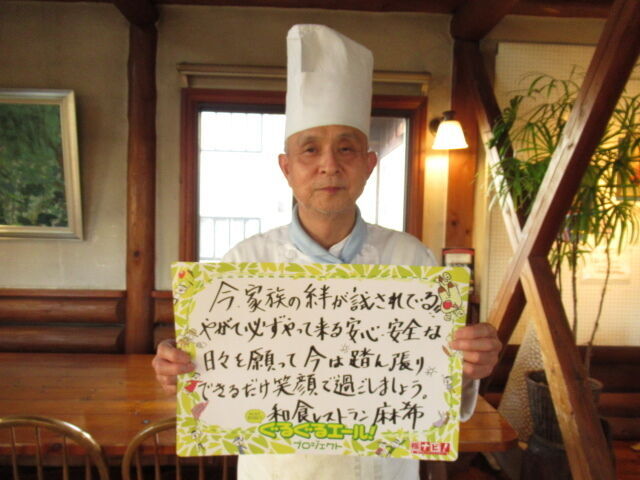 今、家族の絆が試されている。
やがて必ずやって来る安心・安全な
日々を願って今は踏ん張り
できるだけ笑顔で過ごしましょう。
和食レストラン麻布
ぐるぐるエール!
プロジェクト
ナビ!